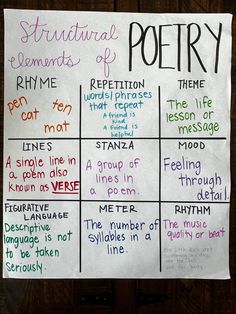 Structural
elements of
POETRY
RHYME
pen ten
cat
mat
REPETITION
words/phrases
that repeat
A friend is
kind
A friend is
helpful
THEME
The life
lesson or
message
LINES
A single line in
a poem also
known as VERSE
STANZA
A group of
lines in
a poem.
MOOD
Feeling
through
detail.
FIGURATIVE
LANGUAGE
Descriptive
language is not
to be taken
seriously.
METER
The number of
syllables in a
line.
RHYTHM
The music
quality or beat